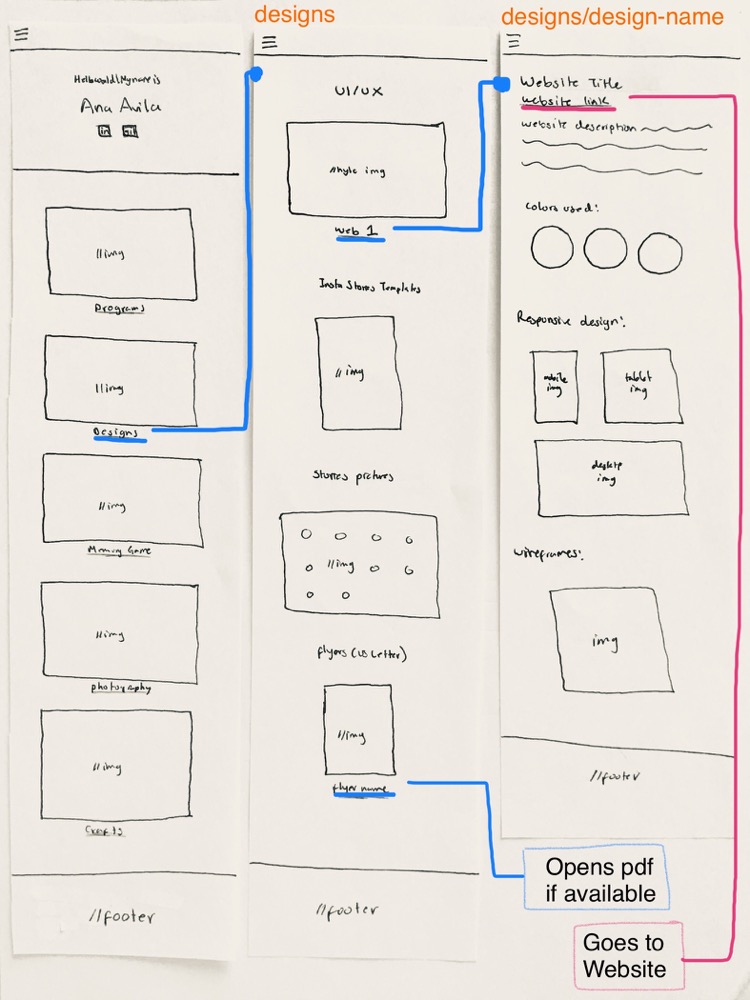 designs
designs/design-name
Helloworld!Myname is
Ana Avila
in
//img
Programs
//img
Designs
//img
Memory Game
//img
photography
//img
//footer
UI/UX
img
Web 1
Insta Stories Templates
//img
Stories pictures
//img
flyers (US Letter)
//img
flyer name
//footer
Website Title
website link
website description
Colors used:
Responsive design:
mobile
img
tablet
img
img
wireframes:
img
//footer
Opens pdf
if available
Goes to
Website